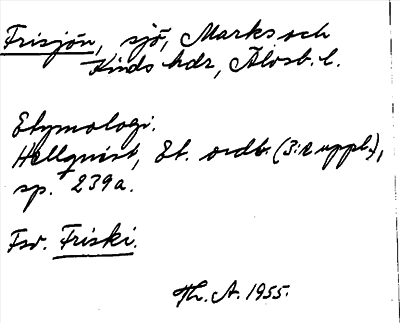 Frisjön, sjö, Marks och
Kinds hdr, Älvsb. l.
Etymologi.
Hellquist, Et. ordb. (3:e uppl.),
sp. 239a.
Fsv. Friski.
Th. A. 1955.